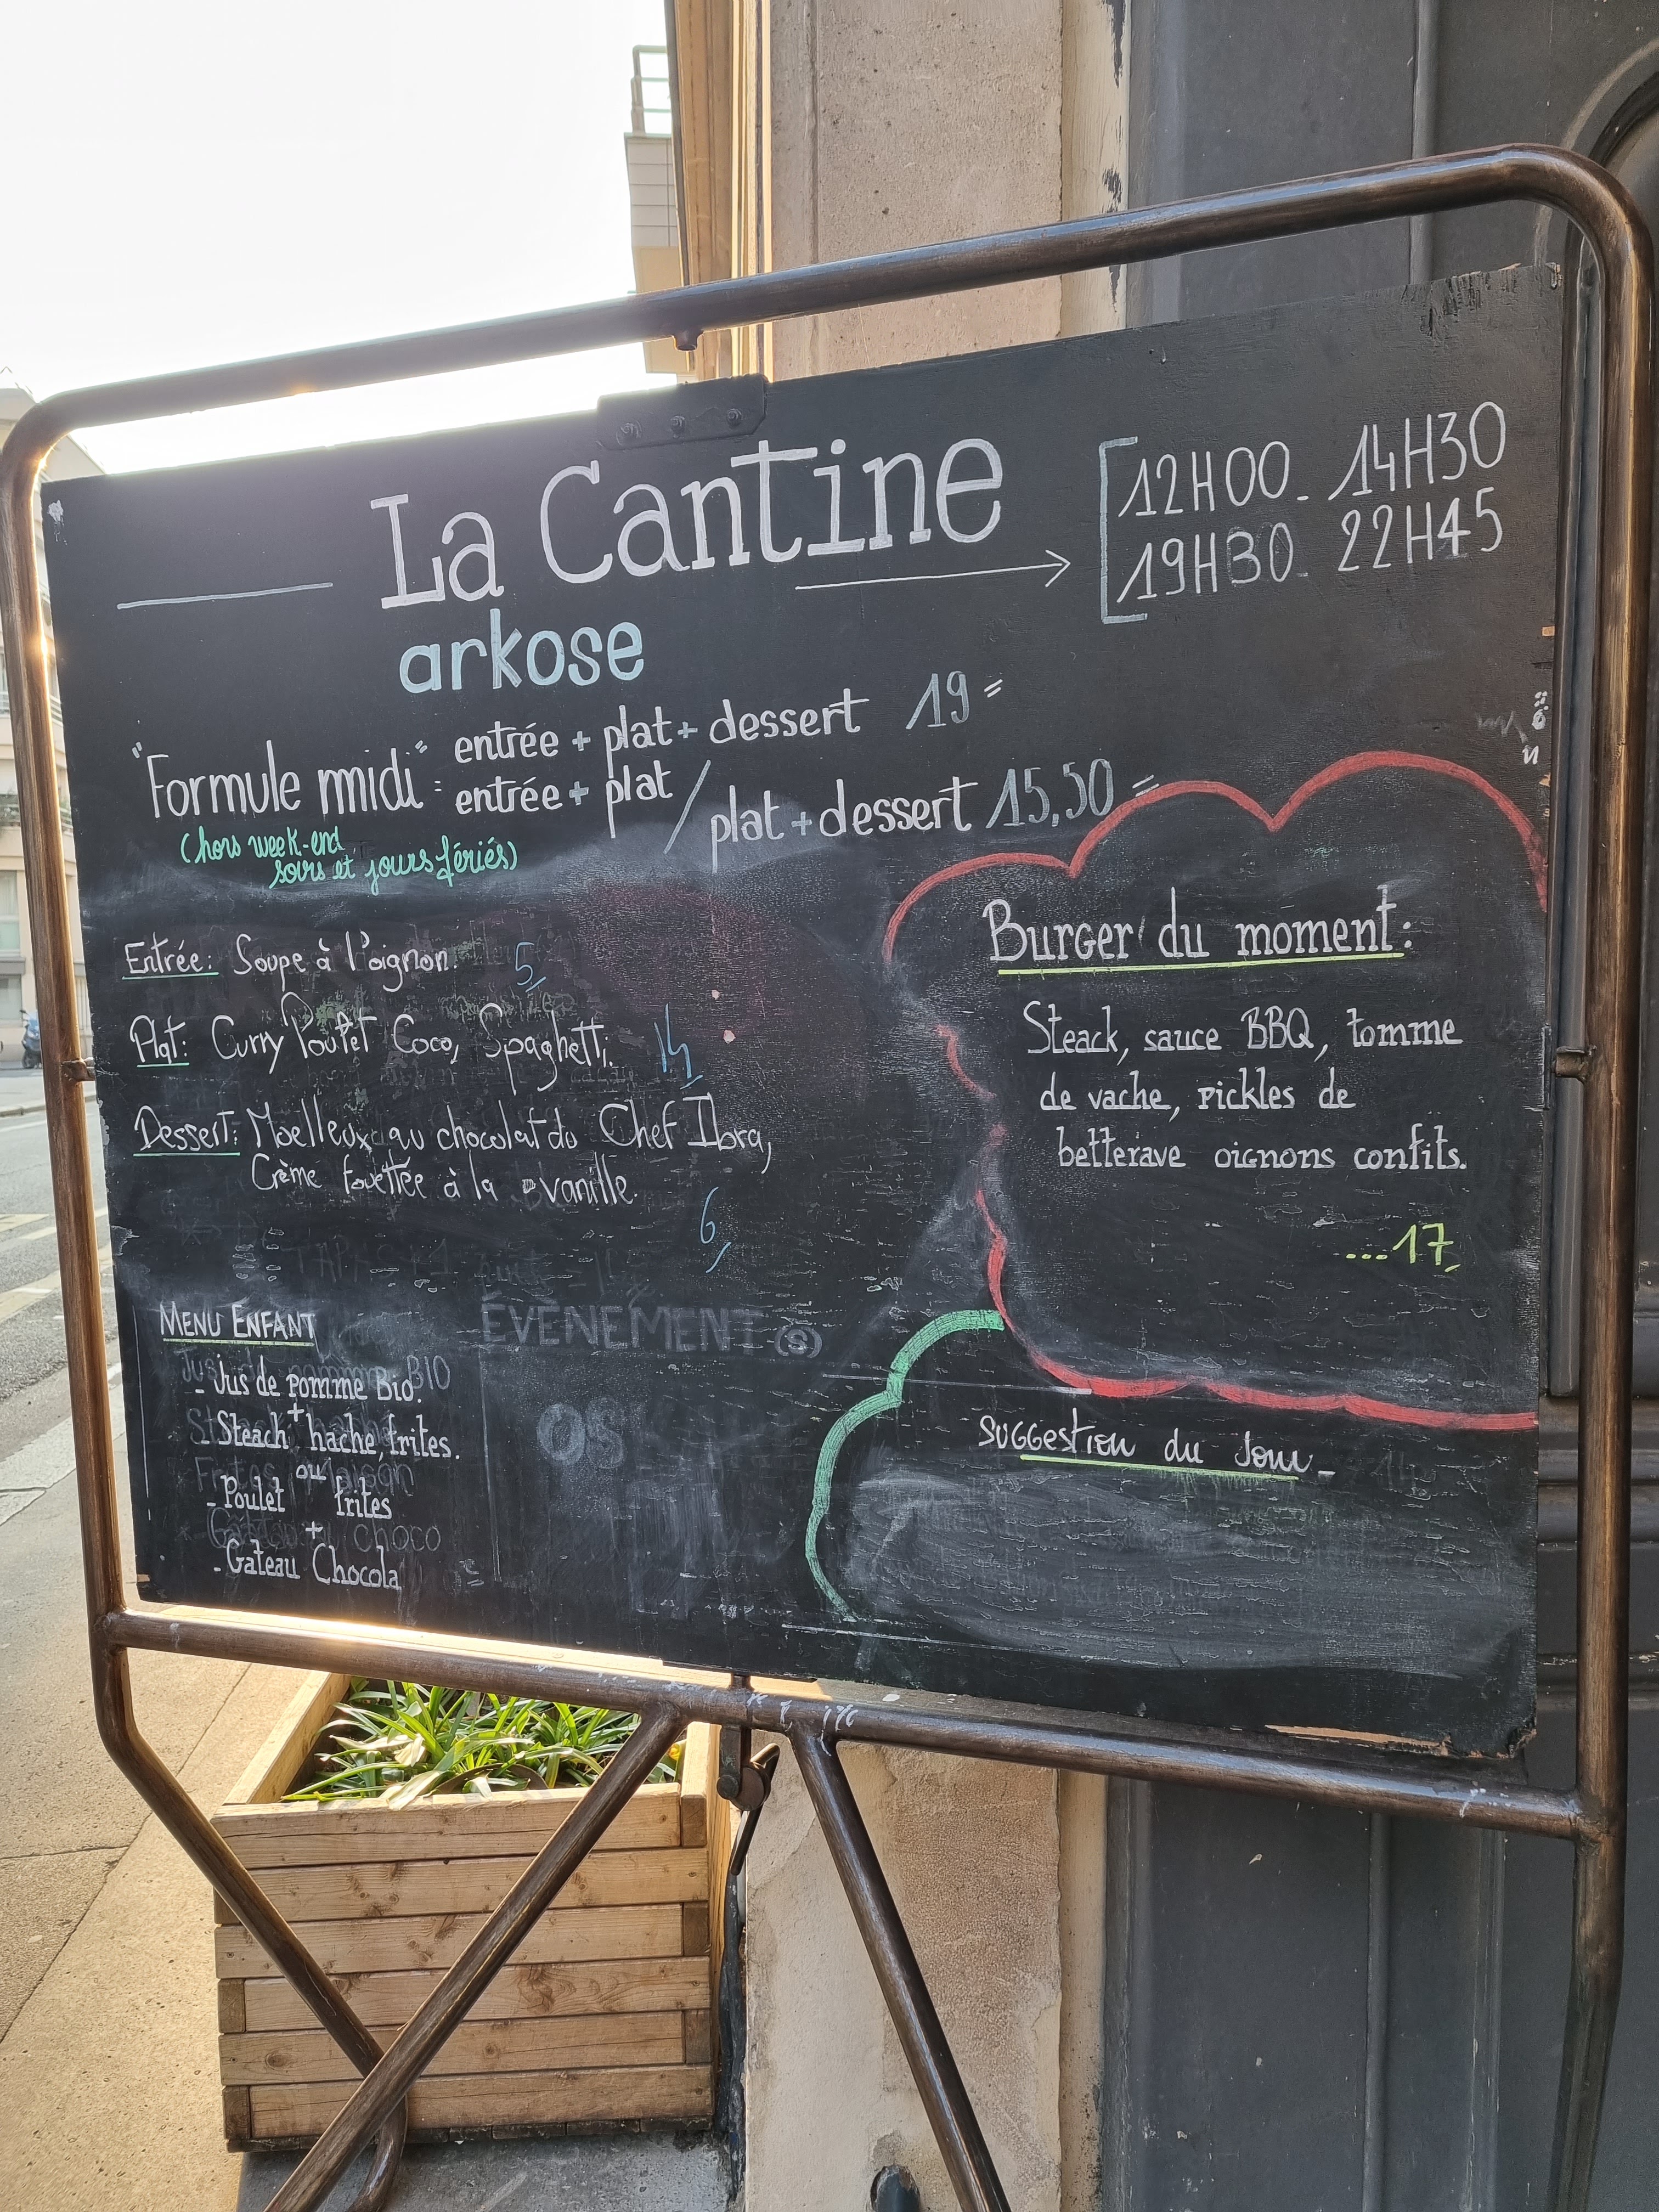 La Cantine
arkose
12H00 - 14H30
19H30 - 22H45
"Formule midi" :
entrée + plat + dessert 19 =
entrée + plat / plat + dessert 15,50 =
(hors week-end
soirs et jours fériés)
Entrée: Soupe à l'oignon. 5
Plat: Curry Poulet Coco, Spaghetti. 14
Dessert: Moelleux au chocolat du Chef Ibra,
Crème fouettée à la vanille.
6
Burger du moment:
Steack, sauce BBQ, tomme
de vache, pickles de
betterave oignons confits.
...17
MENU ENFANT
- Jus de pomme Bio.
+
- Steach haché, frites.
ou
- Poulet frites
+
- Gateau Chocola
ÉVÈNEMENT(S)
suggestion du Jour_